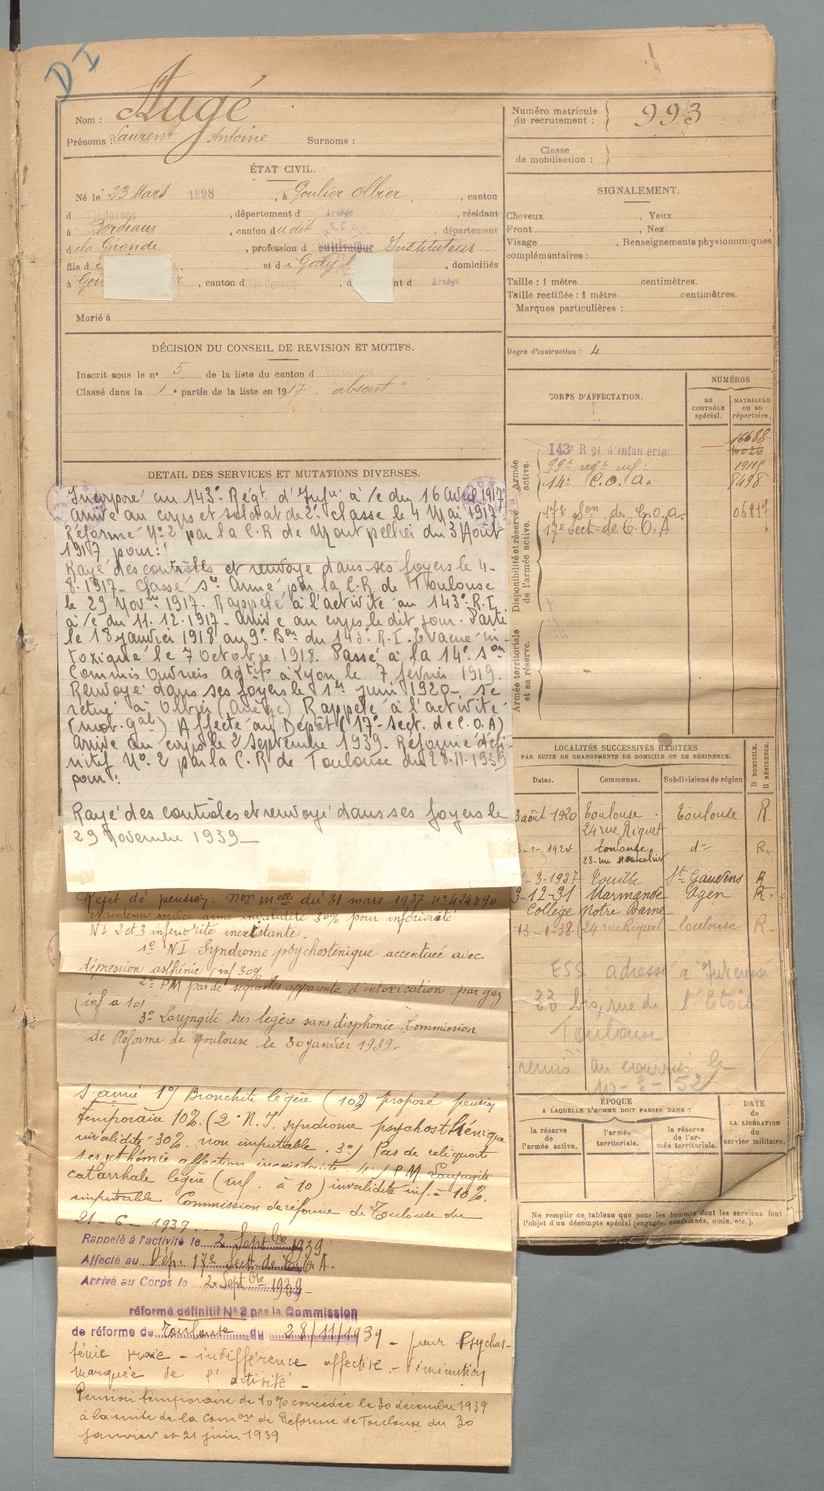 DI
Nom : Augé
Prénoms : Laurent Antoine Surnoms :
ÉTAT CIVIL.
Né le 23 Mars 1898, à Goulier Olbier, canton
d Vicdessos, département d Ariège, résidant
à Bordeaux, canton du dit, département
de la Gironde, profession d cultivateur Instituteur
fils d e et d e Gody, domiciliés
à Gou, canton d Vicdessos, d nt d Ariège
Marié à
DÉCISION DU CONSEIL DE REVISION ET MOTIFS.
Inscrit sous le n° 5 de la liste du canton d Vicdessos
Classé dans la 1e partie de la liste en 1917 "absent"
DETAIL DES SERVICES ET MUTATIONS DIVERSES.
Incorporé au 143e Régt d'Infie à /c du 16 Avril 1917
Arrivé au corps et soldat de 2e classe le 4 Mai 1917
Réformé N° 2 par la C.R de Montpellier du 3 Août
1917 pour :
Rayé des contrôles et renvoyé dans ses foyers le 4-
8.1917_ Classé sce Armé par la C.R de Toulouse
le 29 Novre 1917. Rappelé à l'activité au 143e R.I.
à /c du 11.12.1917_ Arrivé au corps le dit jour. Parti
le 18 janvier 1918 au 9e Bon du 143e R.I. Evacué in-
toxiqué le 7 Octobre 1918. Passé à la 14e Son
Commis Ouvriers Adt à Lyon le 7 février 1919.
Renvoyé dans ses foyers le 1er juin 1920_ se
retire à Olbier (Ariège) Rappelé à l'activité
(mob. gale) Affecté au Dépôt (17e sect. de C.O.A)
Arrivé au corps le 2 septembre 1939. Réformé défi-
nitif N° 2 par la C.R de Toulouse du 28.11.1939
pour :
Rayé des contrôles et renvoyé dans ses foyers le
29 Novembre 1939_
Rejet de pension. Non melle du 31 mars 1937 n° 424890
et maintenu service armé invalidité 30% pour infériorité
N I 2 et 3 infériorité inexistante.
1° N I Syndrome psychosténique accentuée avec
démession asthénie inf 30%
2° PM pas de séquelles apparente d'intoxication par gaz
(inf à 10)
3° Laryngite très légère sans disphonie. Commission
de Réforme de Toulouse le 30 janvier 1939_
S. armé 1°) Bronchite légère (10%) proposé pension
temporaire 10%. (2° N.I. syndrome psychosthénique
invalidité 30% non imputable. 3°) Pas de reliquats
affection inexistante P.M. Laryngite
catarrhale légère (inf. à 10) invalidité inf. = 10%
imputable Commission de réforme de Toulouse du
21_6_1939.
Rappelé à l'activité le 2 Septbre 1939
Affecté au Dép. 17e Sect. de C.O.A.
Arrivé au Corps le 2 Septbre 1939
réformé définitif N° 2 par la Commission
de réforme de Toulouse du 28/11/1939 _ pour Psychas-
ténie vraie _ indifférence affective _ diminution
marquée de l'activité _
Pension temporaire de 10% concédée le 30 décembre 1939
à la suite de la Comon de Réforme de Toulouse du 30
janvier et 21 juin 1939
Numéro matricule du recrutement : 993
Classe de mobilisation :
SIGNALEMENT.
Cheveux , Yeux
Front , Nez
Visage , Renseignements physionomiques
complémentaires :
Taille : 1 mètre centimètres.
Taille rectifiée : 1 mètre centimètres.
Marques particulières :
Degré d'instruction : 4
CORPS D'AFFECTATION.
NUMÉROS
AU CONTRÔLE SPÉCIAL.
MATRICULE OU AU RÉPERTOIRE.
Armée active.
143e Régt d'infanterie
99e régt inf.
14e C.O.A.
16688
10026
8498
Disponibilité et réserve de l'armée active.
17e Son de C.O.A.
17e Sect. de C.O.A
Armée territoriale et sa réserve.
LOCALITÉS SUCCESSIVES HABITÉES
PAR SUITE DE CHANGEMENTS DE DOMICILE OU DE RÉSIDENCE.
Dates. Communes. Subdivisions de région D. DOMICILE. R. RÉSIDENCE.
3 août 1920 Toulouse Toulouse R.
24 rue Riquet
-1-1924 Toulouse d° R.
28 rue
-3-1927 Touille St Gaudens R
3-12-31 Marmande Agen R.
Collège Notre Dame
13-1-38 (24 rue Riquet Toulouse R.
ESS adressé à l'intéressé
33 bis, rue de l'Etoile
Toulouse
remis au courrier le
10-3-52
ÉPOQUE
A LAQUELLE L'HOMME DOIT PASSER DANS :
la réserve de l'armée active.
l'armée territoriale.
la réserve de l'armée territoriale.
DATE de LA LIBÉRATION du service militaire.
Ne remplir ce tableau que pour les hommes dont les services sont
l'objet d'un décompte spécial (engagés, condamnés, omis, etc.).